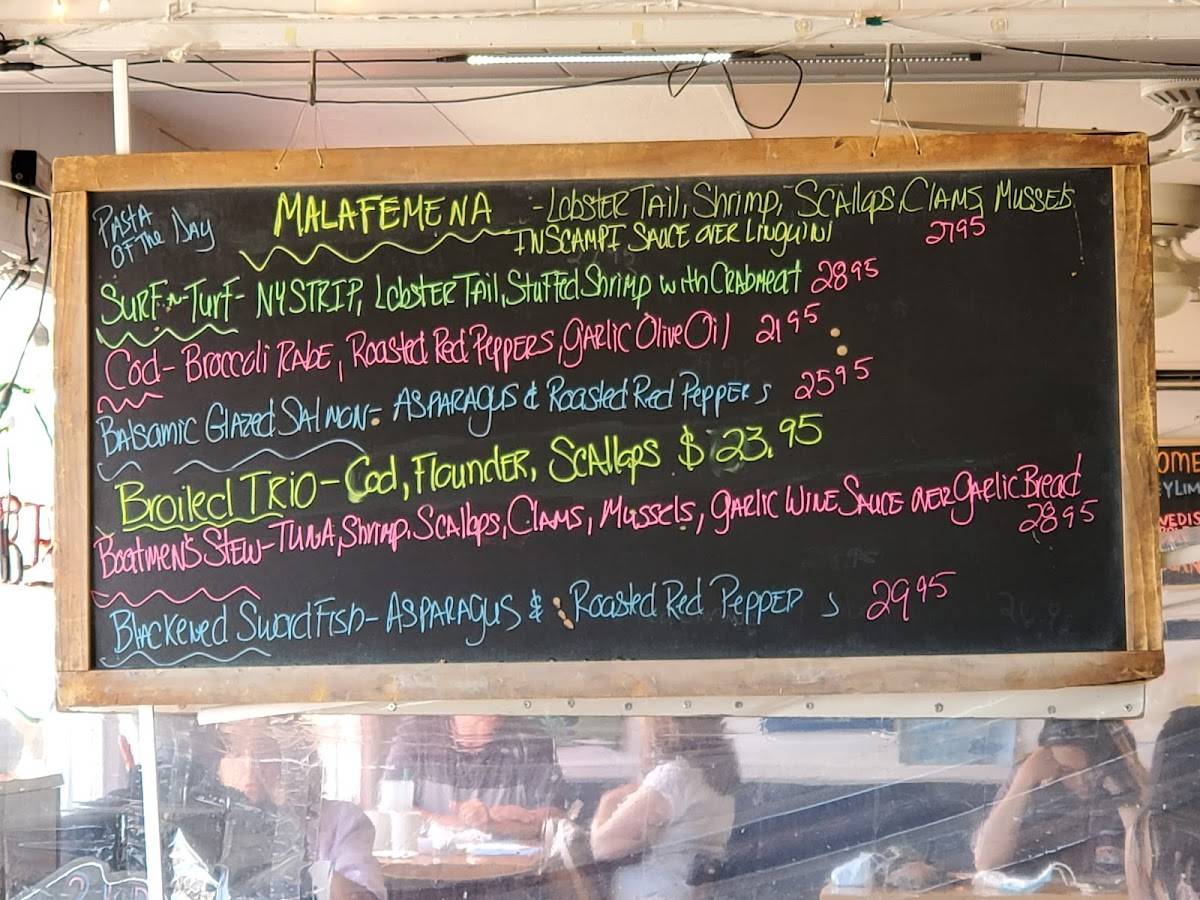 PASTA OF THE DAY MALAFEMENA - LOBSTER TAIL, Shrimp, SCALLOPS, CLAMS, MUSSELS
IN SCAMPI SAUCE OVER LINGUINI 2795
SURF-N-TURF- NY STRIP, LOBSTER TAIL, Stuffed Shrimp with CRABMEAT 2895
Cod- Broccoli RABE, Roasted Red Peppers, GARLIC Olive Oil 2195
BALSAMIC GLAZED SALMON- ASPARAGUS & Roasted Red Peppers 2595
Broiled TRIO- Cod, Flounder, SCALLOPS $23.95
BOATMEN'S STEW- TUNA, Shrimp, SCALLOPS, CLAMS, Mussels, GARLIC WINE SAUCE OVER GARLIC Bread
2895
BLACKENED SWORDFISH- ASPARAGUS & Roasted Red PEPPER S 2995